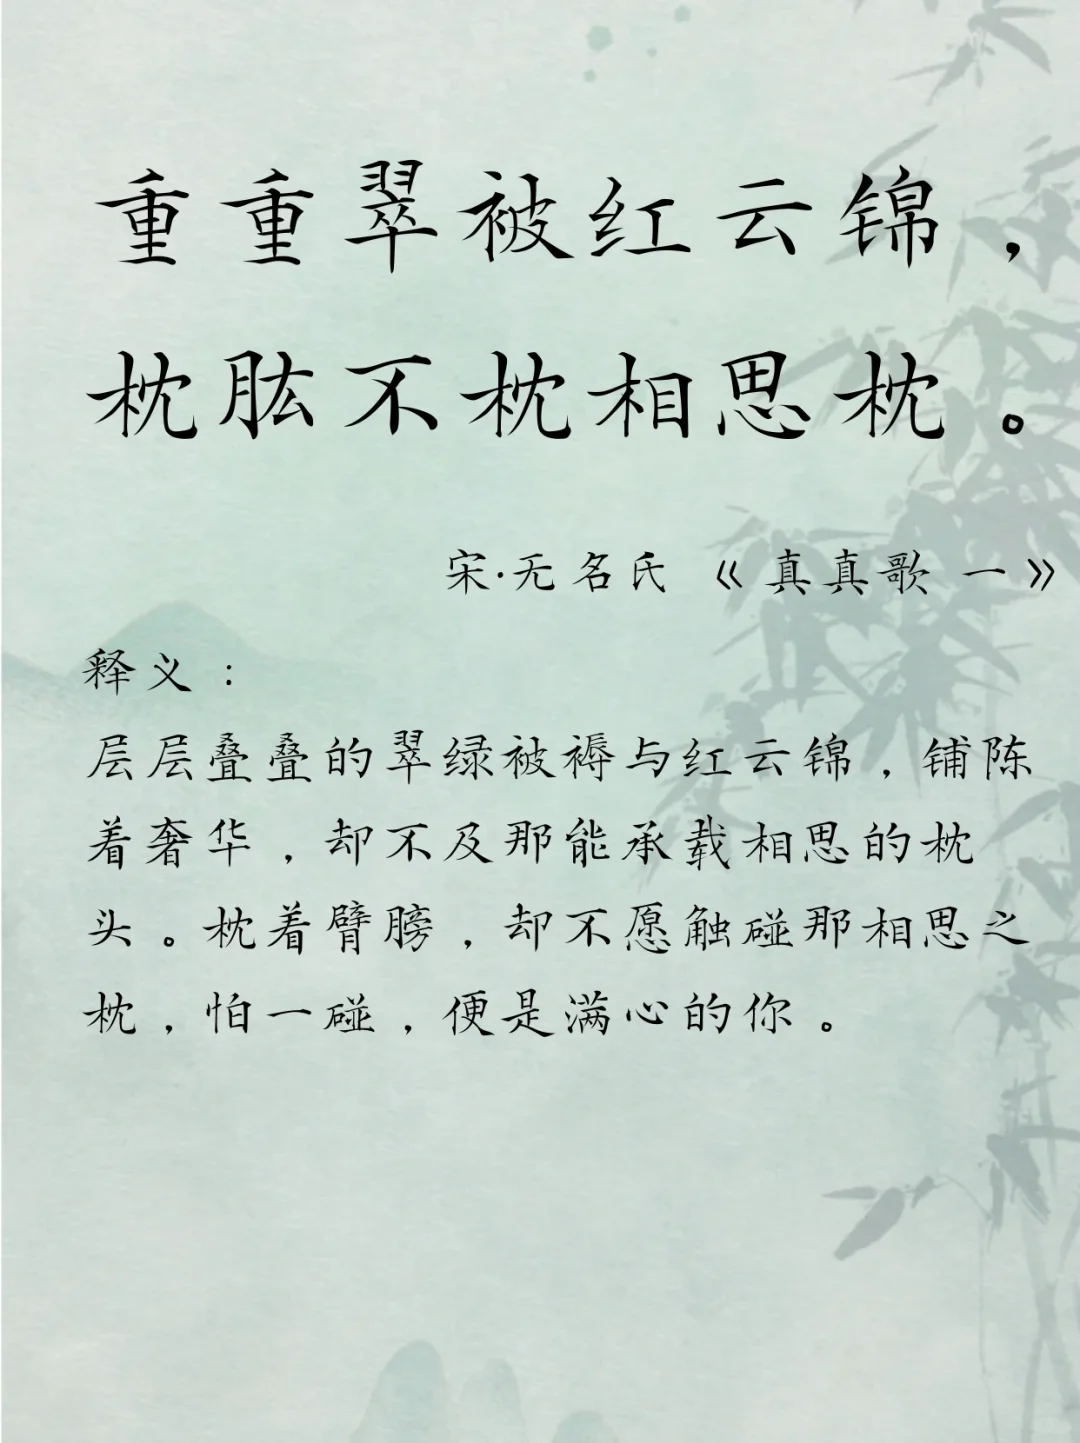 重重翠被红云锦，
枕肱不枕相思枕。
宋·无名氏《真真歌 一》
释义：
层层叠叠的翠绿被褥与红云锦，铺陈
着奢华，却不及那能承载相思的枕
头。枕着臂膀，却不愿触碰那相思之
枕，怕一碰，便是满心的你。